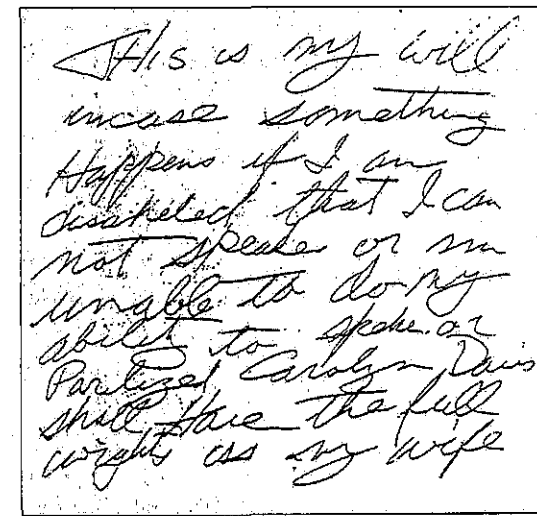 This is my will
incase something
Happens if I am
dissabeled that I can
not speake or am
unable to do my
ability to speke or
Parlized Carolyn Davis
shall Have the full
wrights as my wife